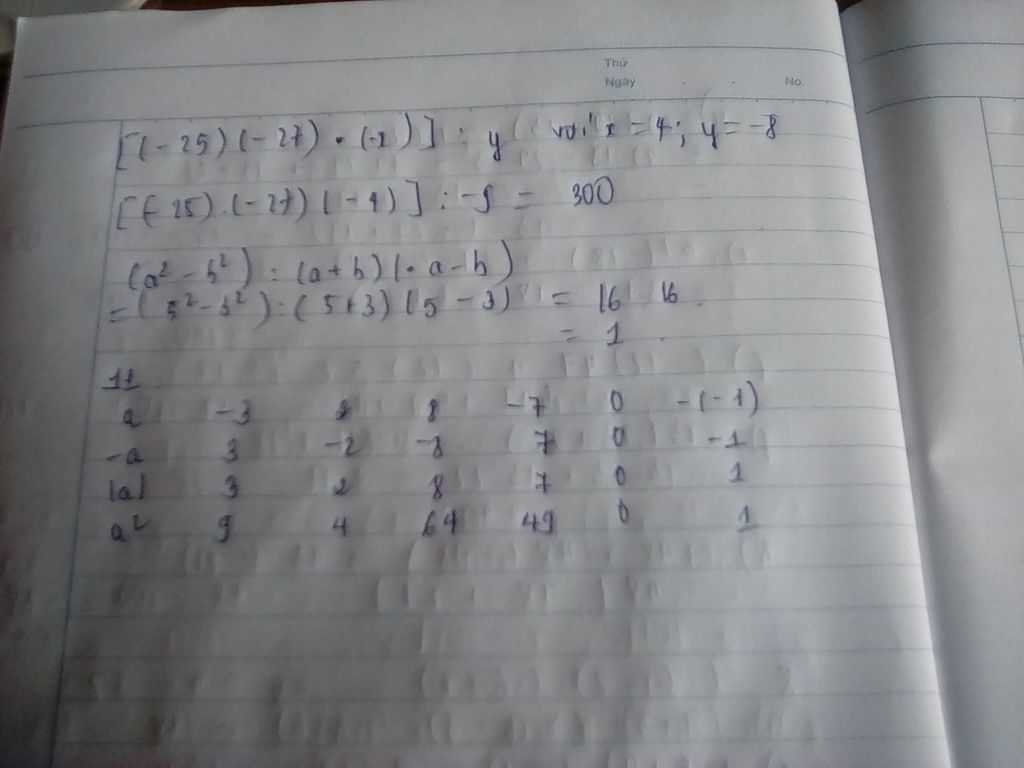 Thứ
Ngày No.
[(-25)(-27) . (-x)] : y với x = 4; y = -8
[(-25).(-27)(-4)] : -9 = 300
(a² - b²) : (a+b)(. a-b)
= (5² - 3²) : (5+3)(5 - 3) = 16 . 16
= 1
11
a -3 2 8 -7 0 -(-1)
-a 3 -2 -8 7 0 -1
|a| 3 2 8 7 0 1
a² 9 4 64 49 0 1